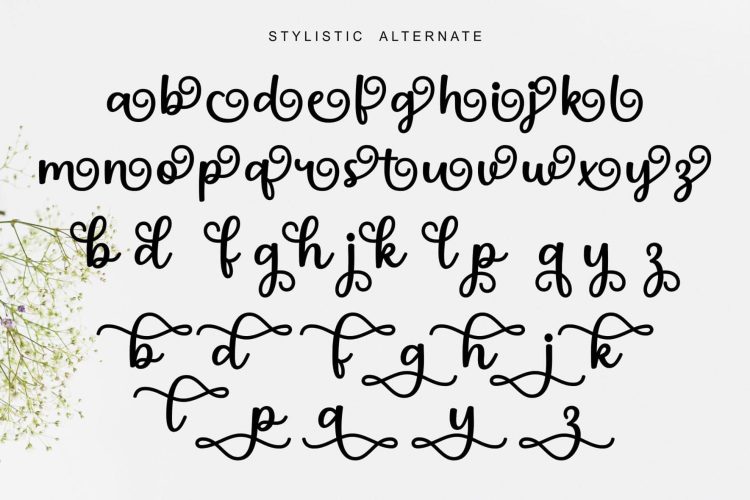 STYLISTIC ALTERNATE
abcdefghijkl
mnopqrstuvwxyz
b d f g h j k l p q y z
b d f g h j k
l p q y z